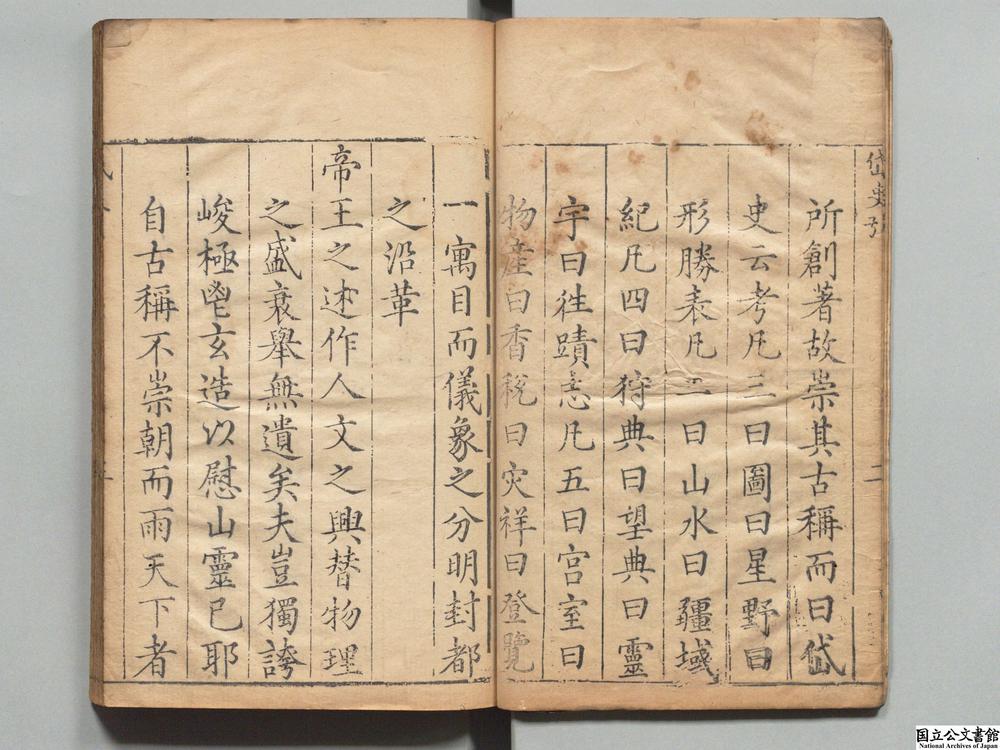 岱史引
二
所創著故崇其古稱而曰岱
史云考凡三曰圖曰星野曰
形勝表凡二曰山水曰疆域
紀凡四曰狩典曰望典曰靈
宇曰徃蹟志凡五曰宫室曰
物産曰香稅曰灾祥曰登覽
一寓目而儀象之分明封都
之沿革
帝王之述作人文之興替物理
之盛衰舉無遺矣夫豈獨誇
峻極鬯玄造以慰山靈已耶
自古稱不崇朝而雨天下者
国立公文書館
National Archives of Japan